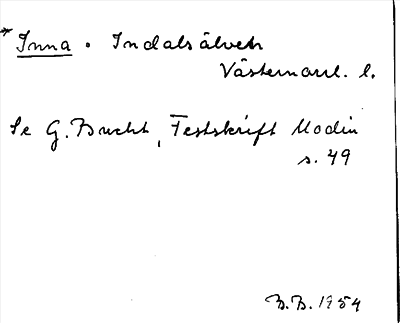 *Inna . Indalsälven
Västernorrl. l.
Se G. Bucht, Festskrift Modin
s. 49
B.B. 1954